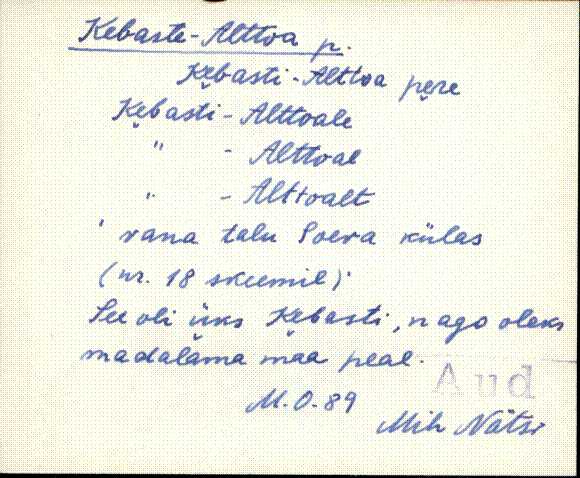 Kebaste-Alttoa p.
Kẹbasti-Alttoa pẹre
Kẹbasti - Alttoale
" - Alttoal
" - Alttoalt
' vana talu Soeva külas
(nr. 18 skeemil)'
See oli üks Kẹbasti, nago oleks
madalama maa peal.
Aud
M.O.89
Mih Nätsi